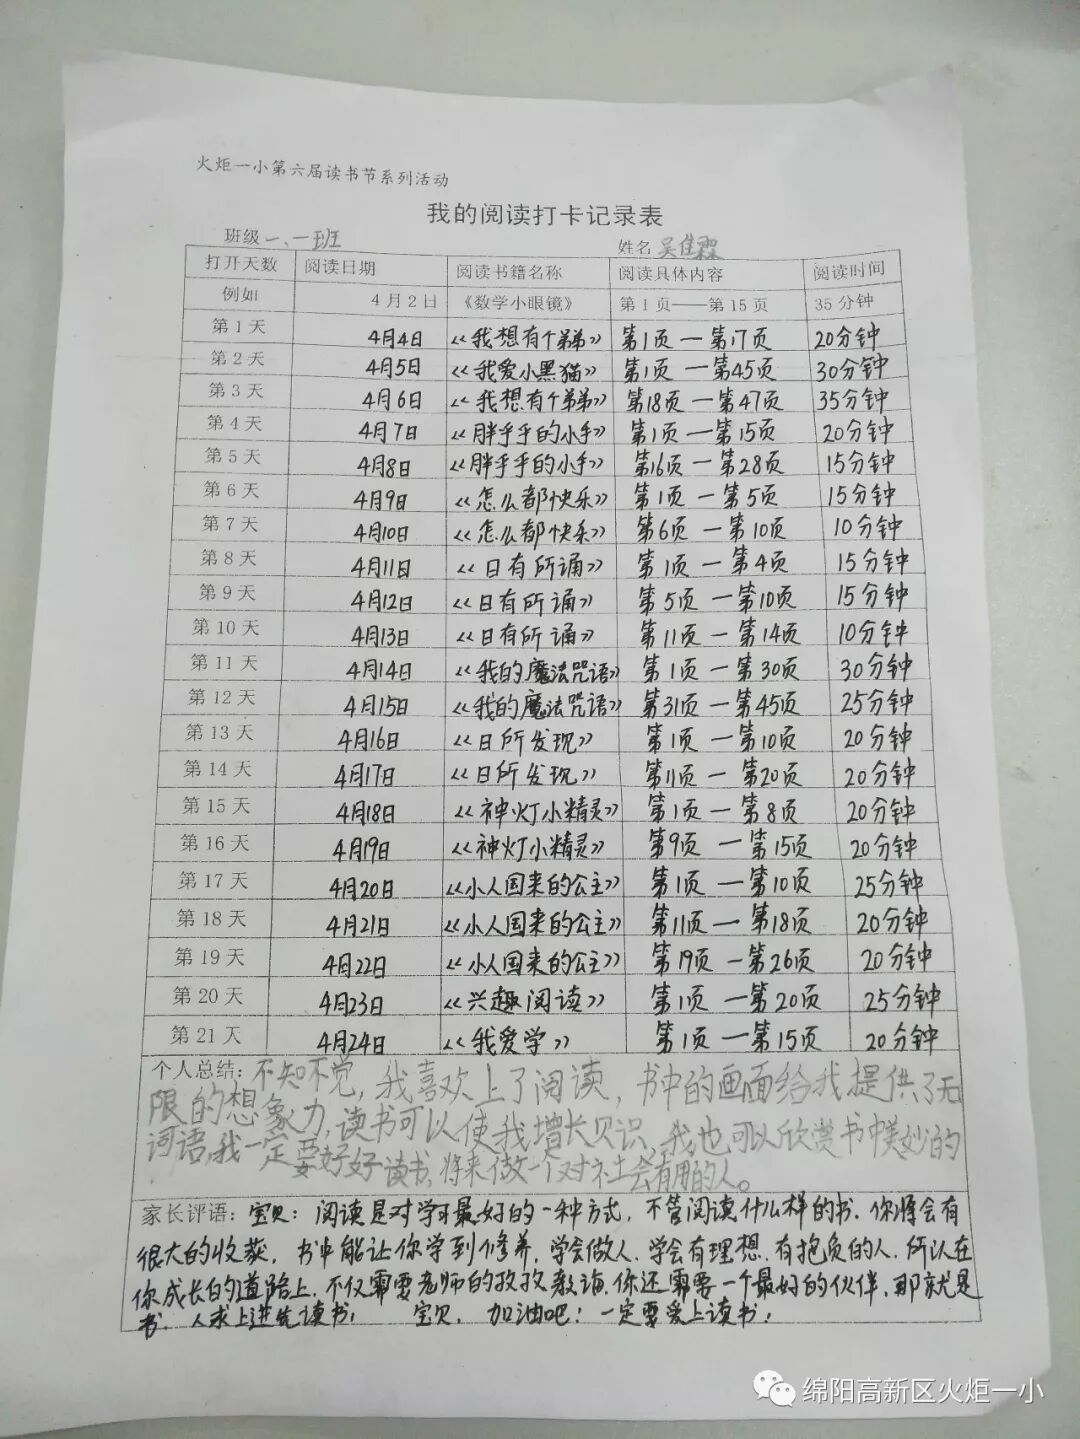 火炬一小第六届读书节系列活动
我的阅读打卡记录表
班级一、一班 姓名 吴佳霖
打开天数 阅读日期 阅读书籍名称 阅读具体内容 阅读时间
例如 4月2日 《数学小眼镜》 第1页——第15页 35分钟
第1天 4月4日 《我想有个弟弟》 第1页—第17页 20分钟
第2天 4月5日 《我爱小黑猫》 第1页—第45页 30分钟
第3天 4月6日 《我想有个弟弟》 第18页—第47页 35分钟
第4天 4月7日 《胖乎乎的小手》 第1页—第15页 20分钟
第5天 4月8日 《胖乎乎的小手》 第16页—第28页 15分钟
第6天 4月9日 《怎么都快乐》 第1页—第5页 15分钟
第7天 4月10日 《怎么都快乐》 第6页—第10页 10分钟
第8天 4月11日 《日有所诵》 第1页—第4页 15分钟
第9天 4月12日 《日有所诵》 第5页—第10页 15分钟
第10天 4月13日 《日有所诵》 第11页—第14页 10分钟
第11天 4月14日 《我的魔法咒语》 第1页—第30页 30分钟
第12天 4月15日 《我的魔法咒语》 第31页—第45页 25分钟
第13天 4月16日 《日所发现》 第1页—第10页 20分钟
第14天 4月17日 《日所发现》 第11页—第20页 20分钟
第15天 4月18日 《神灯小精灵》 第1页—第8页 20分钟
第16天 4月19日 《神灯小精灵》 第9页—第15页 20分钟
第17天 4月20日 《小人国来的公主》 第1页—第10页 25分钟
第18天 4月21日 《小人国来的公主》 第11页—第18页 20分钟
第19天 4月22日 《小人国来的公主》 第19页—第26页 20分钟
第20天 4月23日 《兴趣阅读》 第1页—第20页 25分钟
第21天 4月24日 《我爱学》 第1页—第15页 20分钟
个人总结:不知不觉,我喜欢上了阅读,书中的画面给我提供了无
限的想象力,读书可以使我增长见识,我也可以欣赏书中美妙的
词语,我一定要好好读书,将来做一个对社会有用的人。
家长评语:宝贝:阅读是对学习最好的一种方式,不管阅读什么样的书.你将会有
很大的收获.书中能让你学到修养,学会做人.学会有理想.有抱负的人.所以在
你成长的道路上.不仅需要老师的孜孜教诲.你还需要一个最好的伙伴,那就是
书.人求上进先读书! 宝贝.加油吧!一定要爱上读书!
绵阳高新区火炬一小